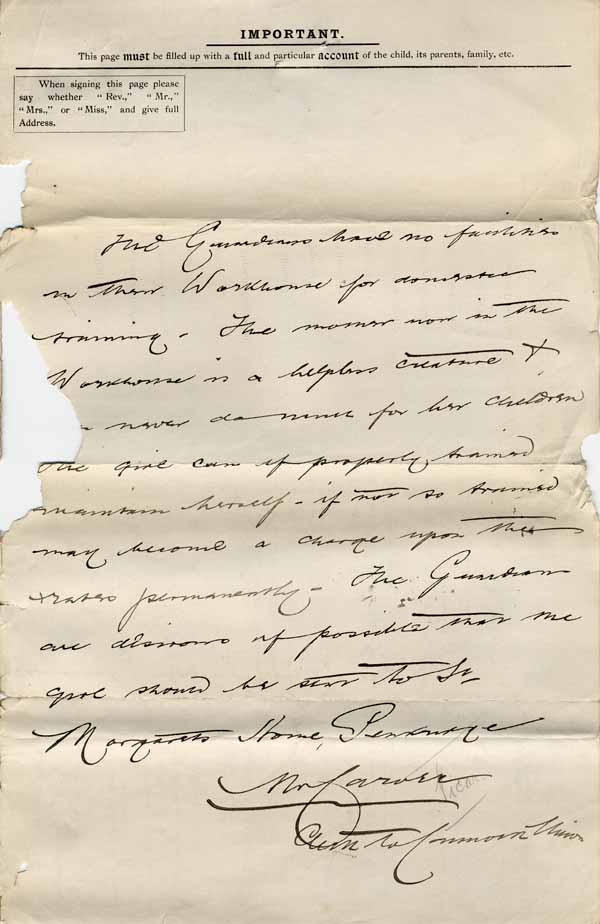 IMPORTANT.
This page must be filled up with a full and particular account of the child, its parents, family, etc.
When signing this page please
say whether "Rev.," "Mr.,"
"Mrs.," or "Miss," and give full
Address.
The Guardians have no facilities
in their Workhouse for domestic
training. The mother now in the
Workhouse is a helpless creature &
never do much for her children
The girl can if properly trained
maintain herself - if not so trained
may become a charge upon the
rates permanently - The Guardians
are desirous if possible that the
girl should be sent to St
Margarets Home, Penkridge
Mr Carver
Clerk to Cannock Union